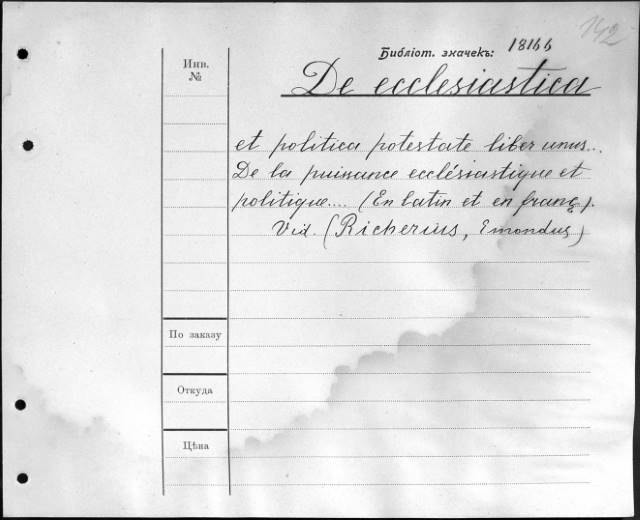 142
Библіот. значекъ: 18166
Инв.
№
De ecclesiastica
et politica potestate liber unus...
De la puissance ecclésiastique et
politique.... (En latin et en franç.).
Vid. (Richerius, Emondus)
По заказу
Откуда
Цѣна